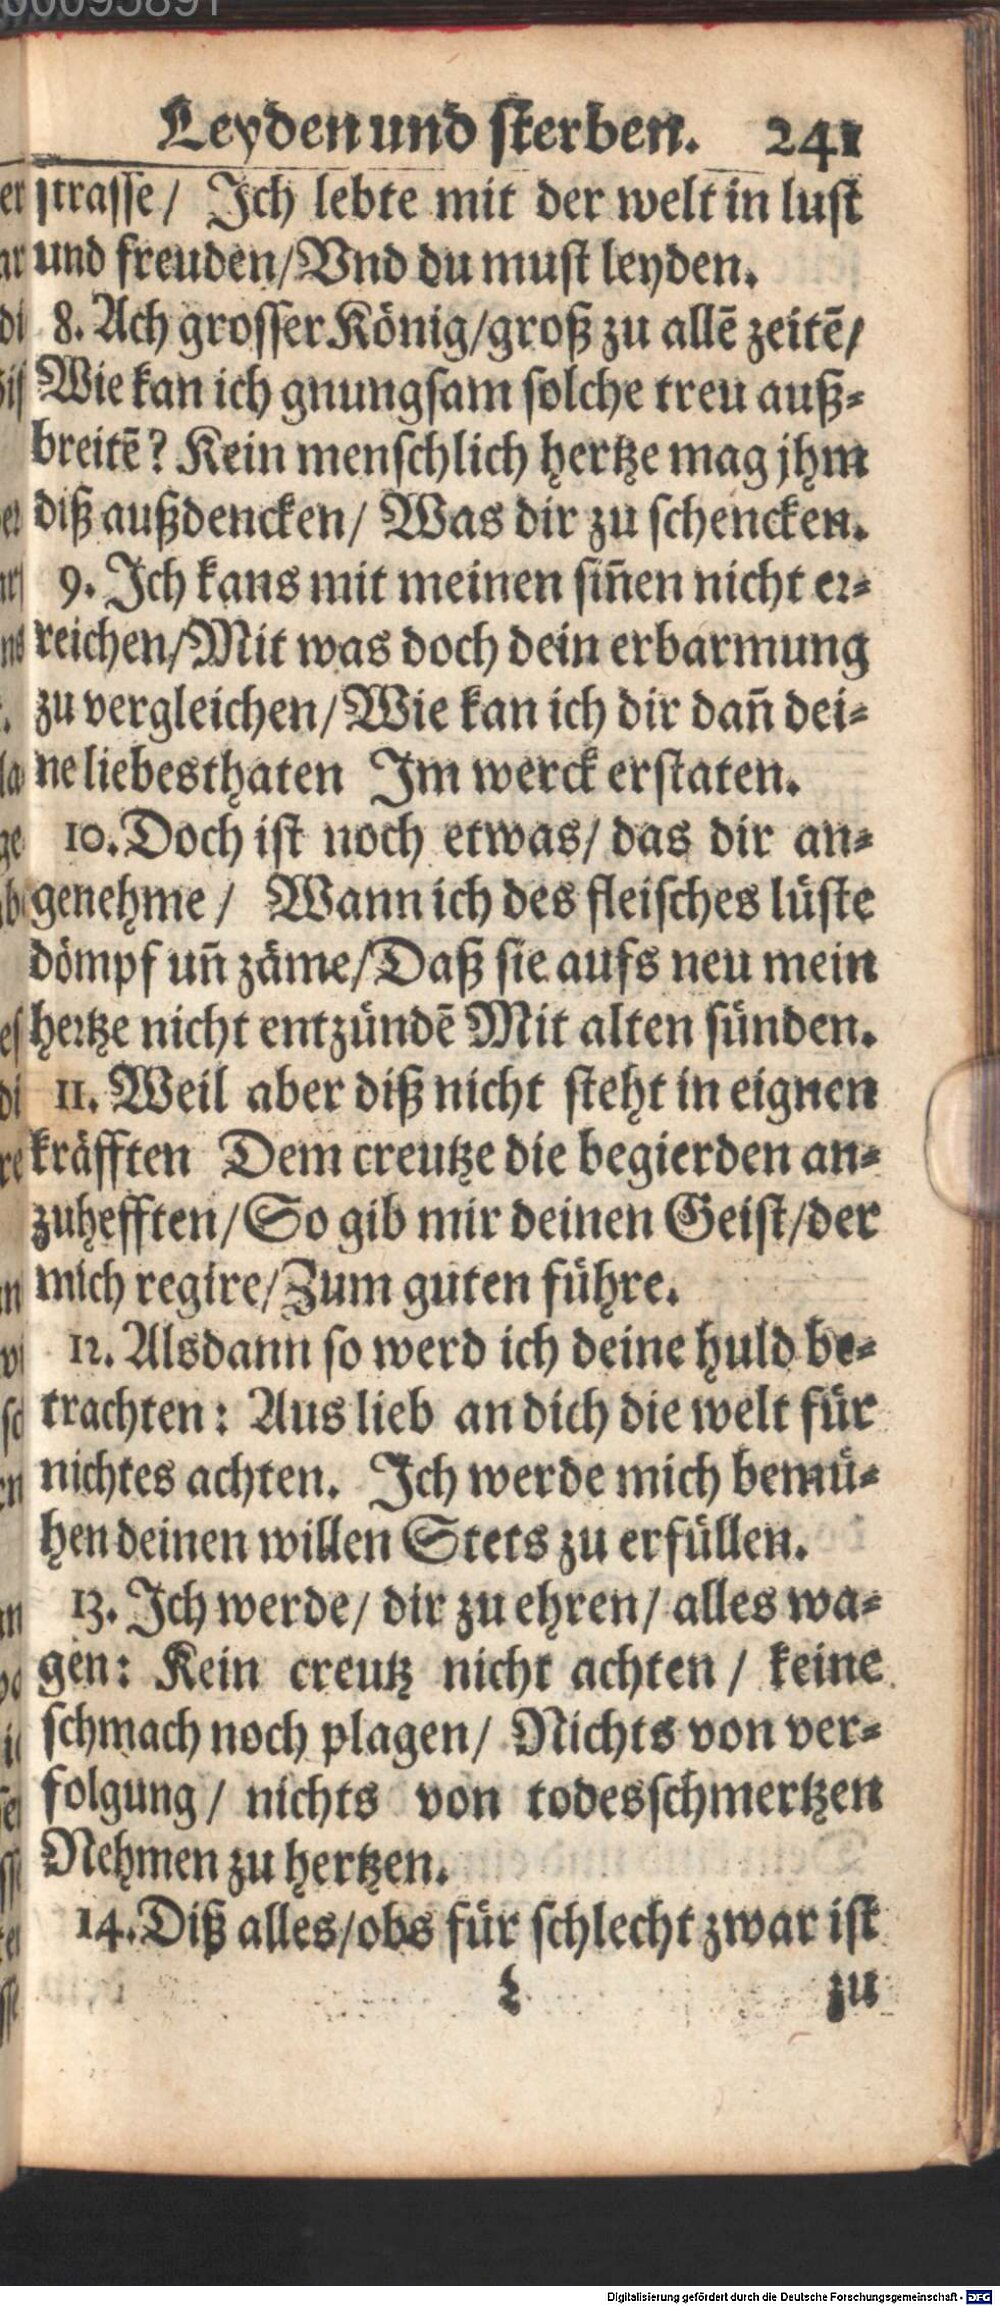 Leyden und sterben. 241
strasse/ Ich lebte mit der welt in lust
und freuden/Vnd du must leyden.
8. Ach grosser König/groß zu allē zeitē/
Wie kan ich gnungsam solche treu auß-
breitē? Kein menschlich hertze mag jhm
diß außdencken/ Was dir zu schencken.
9. Ich kans mit meinen siñen nicht er-
reichen/Mit was doch dein erbarmung
zu vergleichen/Wie kan ich dir dañ dei-
ne liebesthaten Im werck erstaten.
10. Doch ist noch etwas/ das dir an-
genehme/ Wann ich des fleisches lüste
dömpf uñ zäme/Daß sie aufs neu mein
hertze nicht entzündē Mit alten sünden.
11. Weil aber diß nicht steht in eignen
kräfften Dem creutze die begierden an-
zuhefften/So gib mir deinen Geist/der
mich regire/Zum guten führe.
12. Alsdann so werd ich deine huld be-
trachten: Aus lieb an dich die welt für
nichtes achten. Ich werde mich bemü-
hen deinen willen Stets zu erfüllen.
13. Ich werde/ dir zu ehren/ alles wa-
gen: Kein creutz nicht achten/ keine
schmach noch plagen/ Nichts von ver-
folgung/ nichts von todesschmertzen
Nehmen zu hertzen.
14. Diß alles/obs für schlecht zwar ist
zu
Digitalisierung gefördert durch die Deutsche Forschungsgemeinschaft - DFG